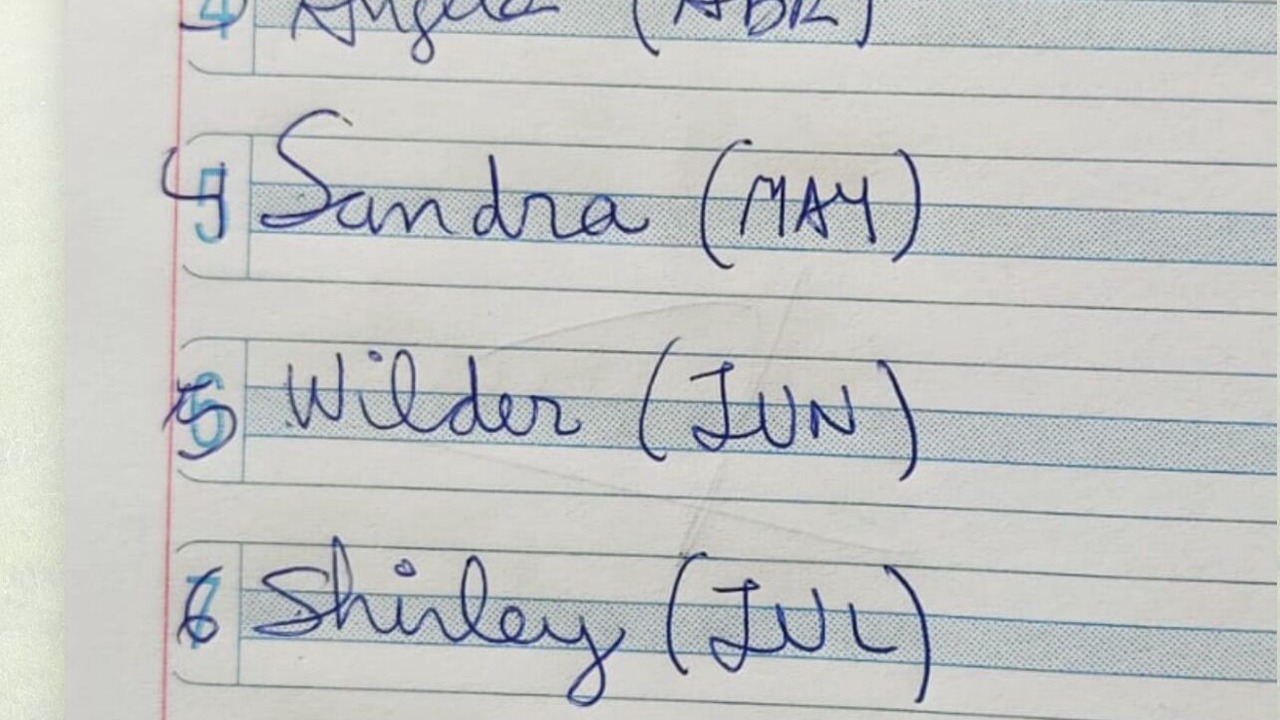 (ABR)
4 Sandra (MAY)
5 Wilder (JUN)
6 Shirley (JUL)